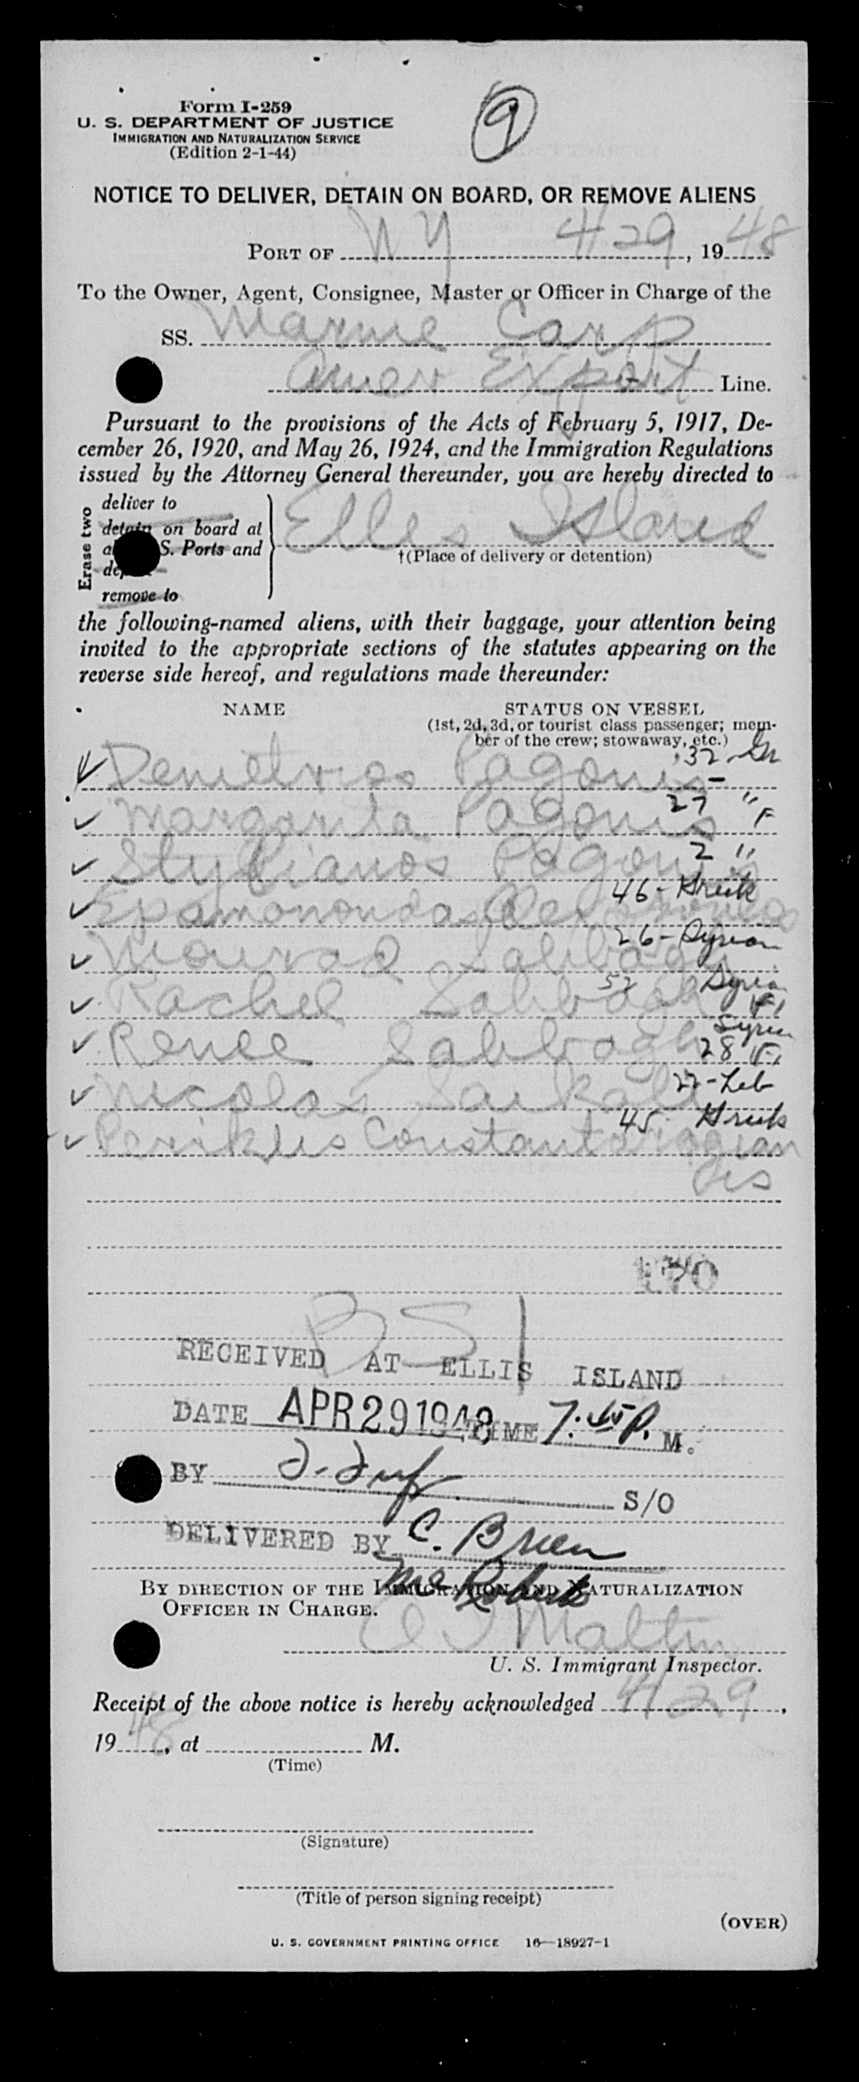 9
Form I-259
U. S. DEPARTMENT OF JUSTICE
IMMIGRATION AND NATURALIZATION SERVICE
(Edition 2-1-44)
NOTICE TO DELIVER, DETAIN ON BOARD, OR REMOVE ALIENS
PORT OF NY 4/29, 1948
To the Owner, Agent, Consignee, Master or Officer in Charge of the
SS. Marine Carp
Amer Export Line.
Pursuant to the provisions of the Acts of February 5, 1917, De-
cember 26, 1920, and May 26, 1924, and the Immigration Regulations
issued by the Attorney General thereunder, you are hereby directed to
Erase two
deliver to
detain on board at
S. Ports and
remove to
Ellis Island
†(Place of delivery or detention)
the following-named aliens, with their baggage, your attention being
invited to the appropriate sections of the statutes appearing on the
reverse side hereof, and regulations made thereunder:
NAME STATUS ON VESSEL
(1st, 2d, 3d, or tourist class passenger; mem-
ber of the crew; stowaway, etc.)
Demetrios Pagonis 32-Gr
Margarita Pagonis 27 " F
Stylianos Pagonis 2 "
Epamonondas 46-Greek
Mourad Sabbagh 26-Syrian
Rachel Sabbagh 52 Syrian F
Renee Sabbagh Syrian 28 F
Nicolas Saikali 22-Leb
Periklis Constantinidis 45 Greek
BSI
RECEIVED AT ELLIS ISLAND
DATE APR 29 1948 TIME 7:45 P. M.
BY S/O
DELIVERED BY C. Brien
Mc Roberts
BY DIRECTION OF THE IMMIGRATION AND NATURALIZATION
OFFICER IN CHARGE.
U. S. Immigrant Inspector.
Receipt of the above notice is hereby acknowledged 4/29,
1948, at M.
(Time)
(Signature)
(Title of person signing receipt)
(OVER)
U. S. GOVERNMENT PRINTING OFFICE 16—18927-1